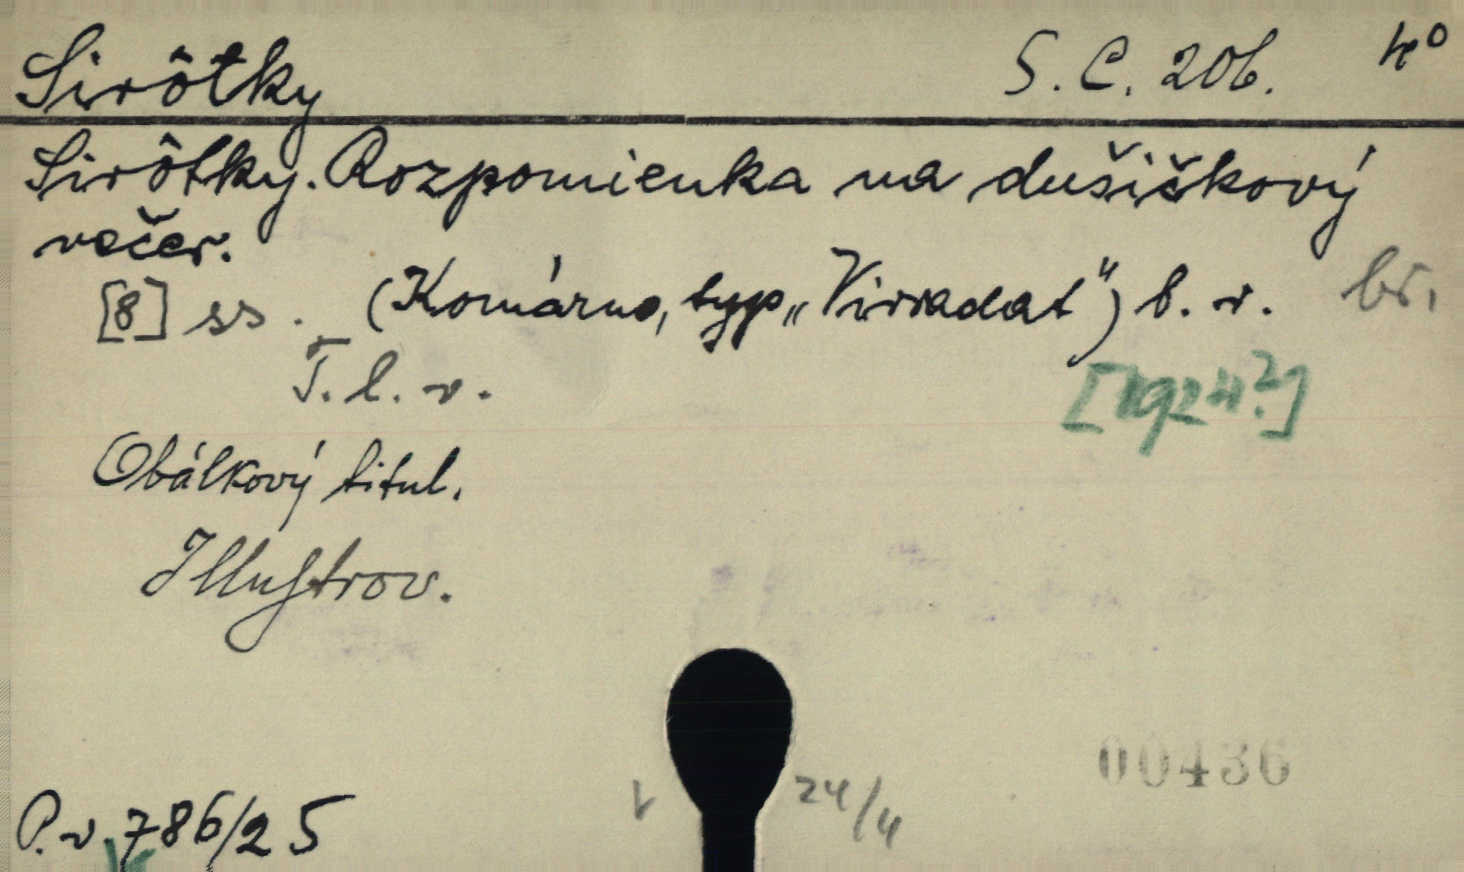 Sirôtky S. C. 206. 4°
Sirôtky. Rozpomienka na dušičkový
večer.
[8] ss. (Komárno, typ „Virradat") b. r. br.
T. l. v. [1924?]
Obálkový titul.
Illustrov.
00436
24/4
P. v. 786/25